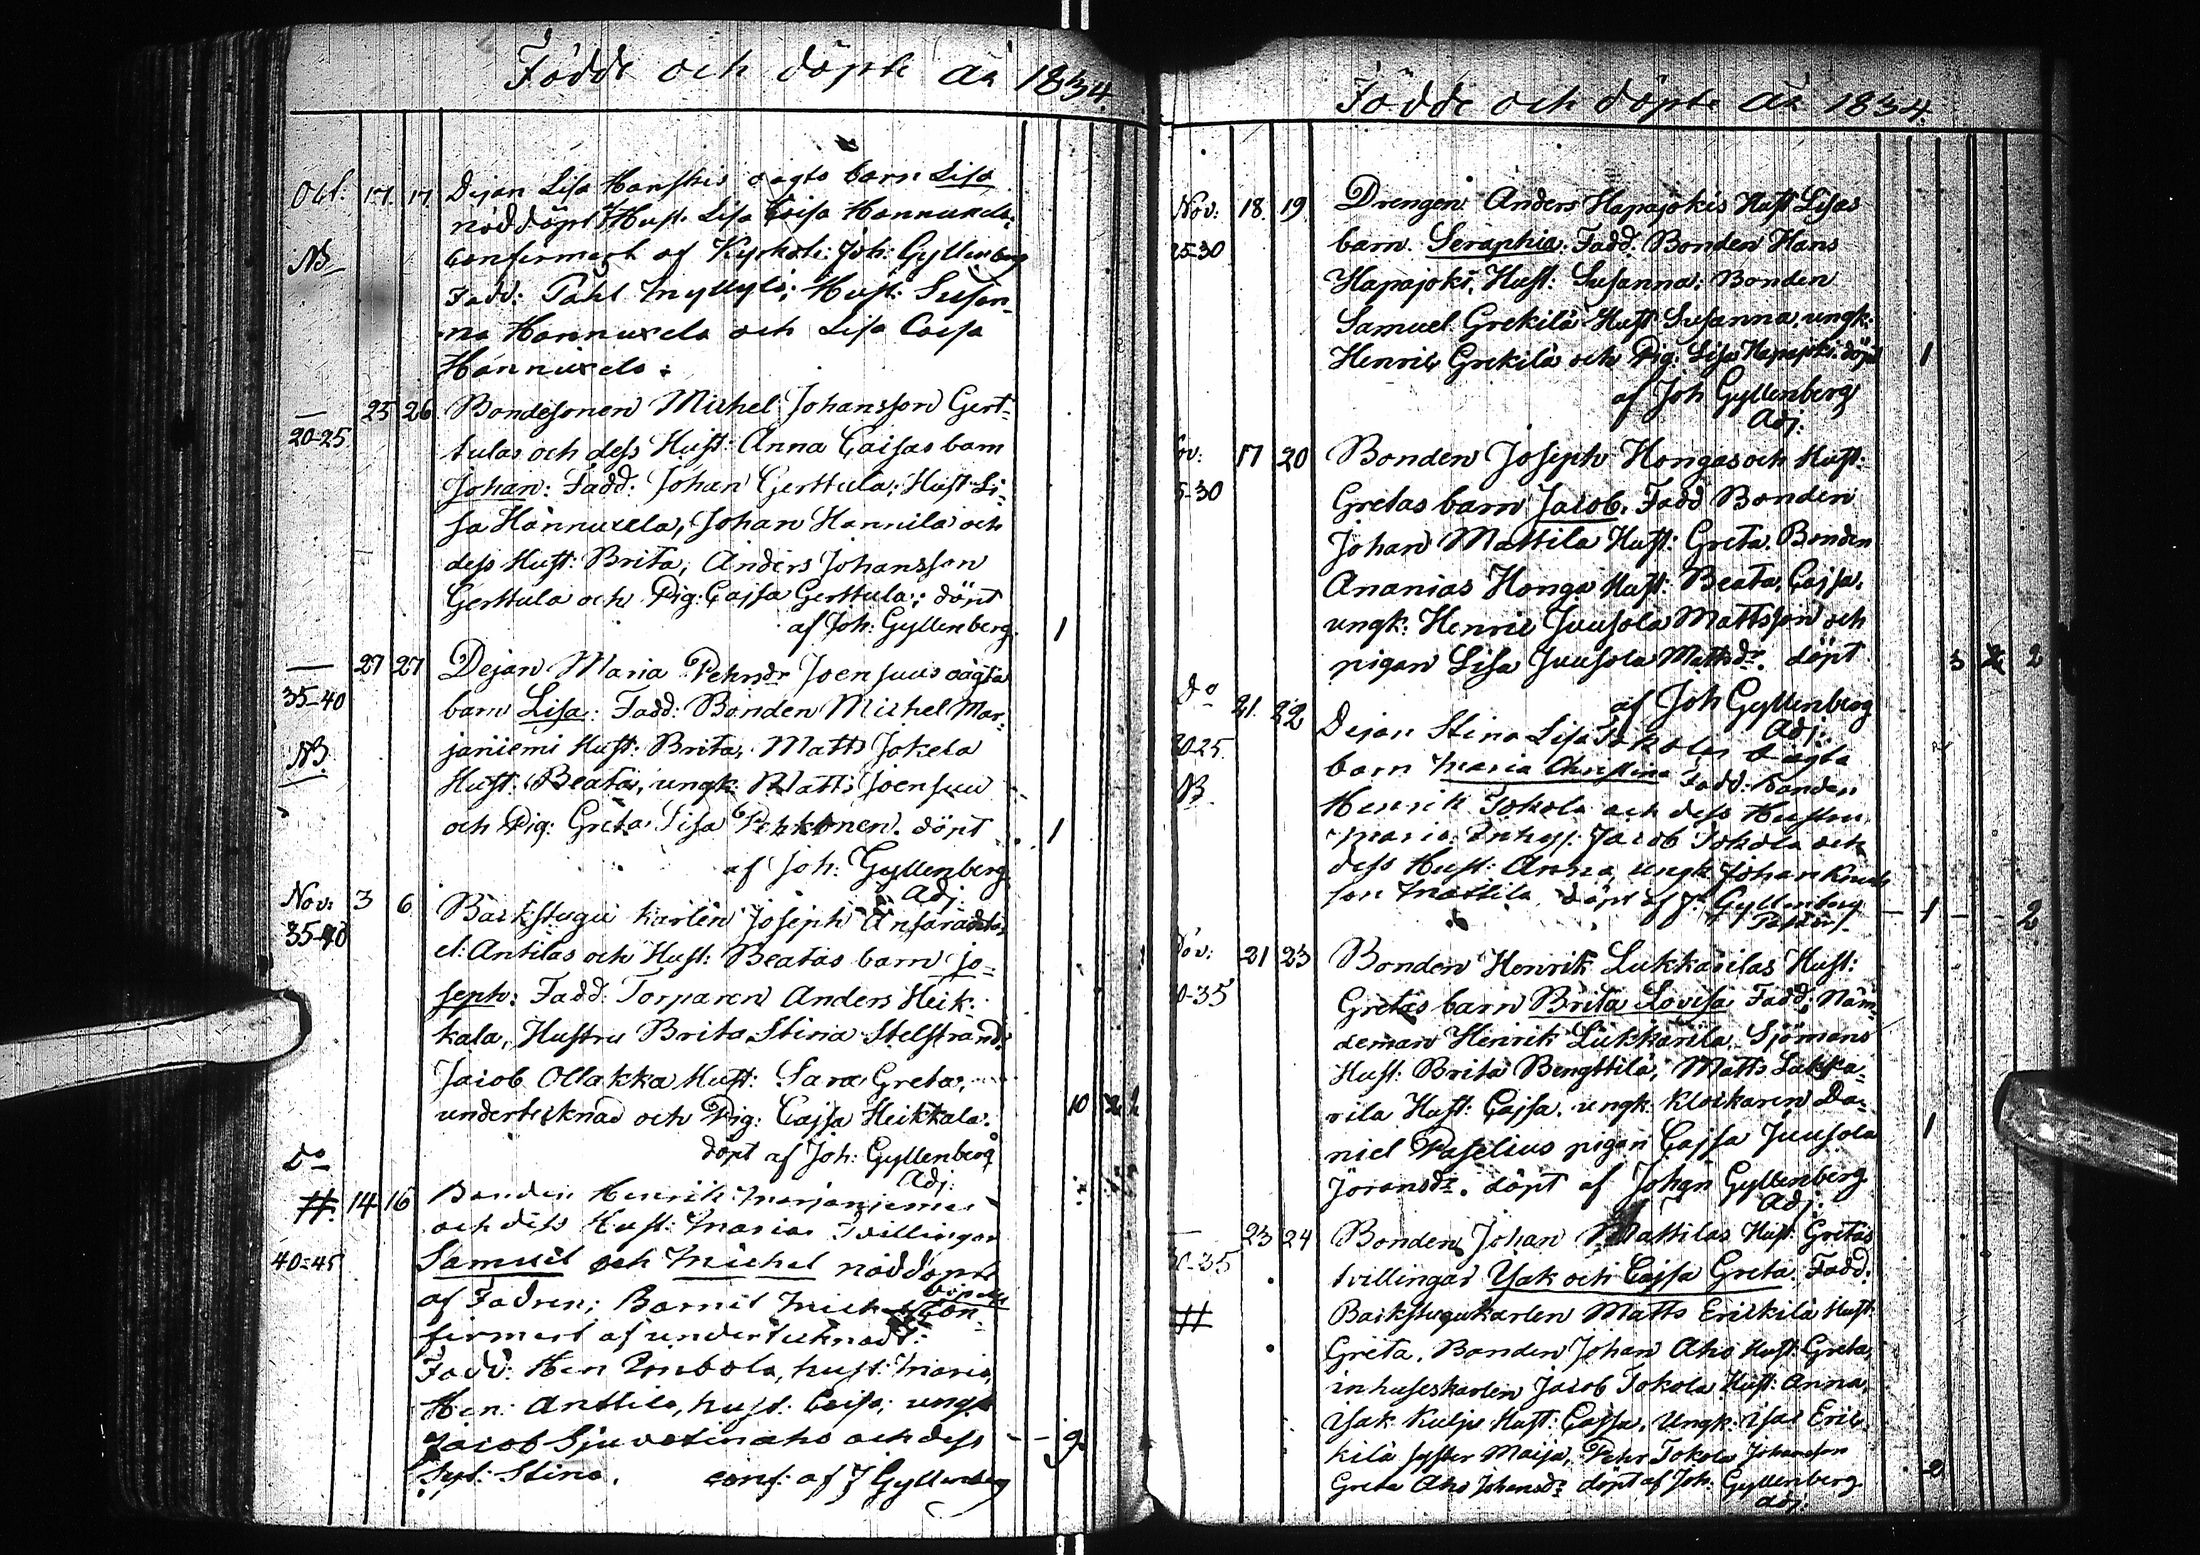 Födde och döpte år 1834.
Oct. 17. 17. Dejan Lisa Hanskis oägta barn Lisa
nöddöpt Hust. Lisa Caisa Hannuxela
NB confirmert af Kyrkoh: Joh: Gyllenberg
Fadd: Påhl Myllylä; Hust: Susan-
na Hannuxela och Lisa Caisa
Hannuxela.
— 25 26 Bondesonen Michel Johansson Gert-
20-25 tulas och dess Hust: Anna Caisas barn
Johan: Fadd: Johan Gerttula; Hust Li-
sa Hannuxela, Johan Hannila och
dess Hust: Brita, Anders Johansson
Gerttula och Pig: Cajsa Gerttula; döpt
af Joh: Gyllenberg. 1
— 27 27 Dejan Maria Pehrsdr Joensuus oägta
35-40 barn Lisa: Fadd: Bonden Michel Mar-
janiemi Hust: Brita, Matts Jokela
NB. Hust: Beata, ungk: Matts Joensuu
och Pig: Greta Lisa Pekkonen. döpt 1
af Joh: Gyllenberg
Adj.
Nov: 3 6 Backstugu karlen Joseph
35-40 el: Antilas och Hust: Beatas barn Jo-
seph: Fadd: Torparen Anders Heik-
kala, Hustru Brita Stina Stelstrand.
Jacob Ollakka Hust: Sara Greta,
undertecknad och Pig: Cajsa Heikkala. 10
döpt af Joh: Gyllenberg
Adj.
Do
# 14 16 Bonden Henrik Marjaniemi
och dess Hust: Maria Tvillingar
40-45 Samuel och Michel nöddöpte
af Fadren; Barnet Michel con-
firmert af undertecknad:
Fadd: Hen hust: Maria,
Hen: Anttila, hust: Caisa; ungk
Jacob och dess
Syst: Stina. conf: af J Gyllenberg
Födde och döpte år 1834.
Nov: 18. 19. Drengen Anders Hapajokis Hust Lisas
25-30 barn Seraphia. Fadd: Bonden Hans
Hapajoki, Hust: Susanna; Bonden
Samuel Grekilä Hust Susanna, ungk:
Henric Grekilä och Pig: Lisa Hapajoki. döpt 1
af Joh Gyllenberg
Adj.
17 20 Bonden Joseph Hongas och Hust:
5-30 Gretas barn Jacob. Fadd Bonden
Johan Mattila Hust: Greta. Bonden
Ananias Honga Hust: Beata Cajsa,
ungk: Henric Juusola Mattsson och
pigan Lisa Juusola Mattsdr. döpt 3 2
af Joh Gyllenberg
Adj.
Do 21. 22 Dejan Stina Lisa Tokolas oägta
20-25 barn Maria Christina Fadd: Bonden
Henrik Tokola och dess Hustru
Maria. Inhys: Jacob Tokola och
dess Hust: Anna, ungk Johan
son Mattila döpt af J. Gyllenberg 1 2
Nov: 21 23 Bonden Henrik Lukkarilas Hust:
30-35 Gretas barn Brita Lovisa Fadd: Näm-
deman Henrik Lukkarila. Sjömans
Hust: Brita Bengttila, Matts Lukka-
rila Hust: Cajsa. ungk: klockaren Da-
niel Paselius pigan Cajsa Juusola 1
Göransdr. döpt af Johan Gyllenberg
Adj.
— 23 24 Bonden Johan Mattilas Hust: Gretas
30-35 tvillingar Ysak och Cajsa Greta. Fadd:
# Backstugukarlen Matts Erickilä Hust:
Greta. Bonden Johan Aho Hust: Greta,
inhuseskarlen Jacob Tokola Hust: Anna,
Isak Kulju Hust: Cajsa, Ungk: Isac Eric-
kilä syster Maija, Pehr Tokola Johansson
Greta Aho Johansdr döpt af Joh: Gyllenberg 2
Adj.